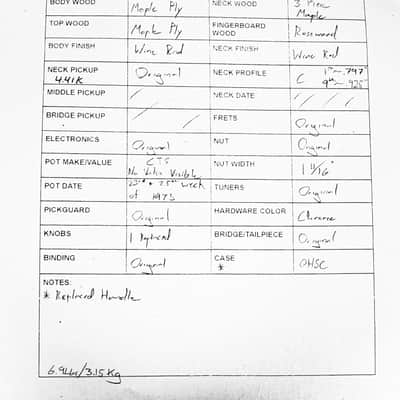 BODY WOOD Maple Ply NECK WOOD 3 Piece Maple
TOP WOOD Maple Ply FINGERBOARD WOOD Rosewood
BODY FINISH Wine Red NECK FINISH Wine Red
NECK PICKUP 4.41K Original NECK PROFILE C 1st ~.797" 9th ~.925"
MIDDLE PICKUP / / NECK DATE / / / /
BRIDGE PICKUP / / / FRETS Original
ELECTRONICS Original NUT Original
POT MAKE/VALUE CTS No Value Visible NUT WIDTH 1 11/16"
POT DATE 22nd + 25th week of 1973 TUNERS Original
PICKGUARD Original HARDWARE COLOR Chrome
KNOBS 1 Replaced BRIDGE/TAILPIECE Original
BINDING Original CASE * OHSC
NOTES:
* Replaced Handle
6.94lbs/3.15Kg